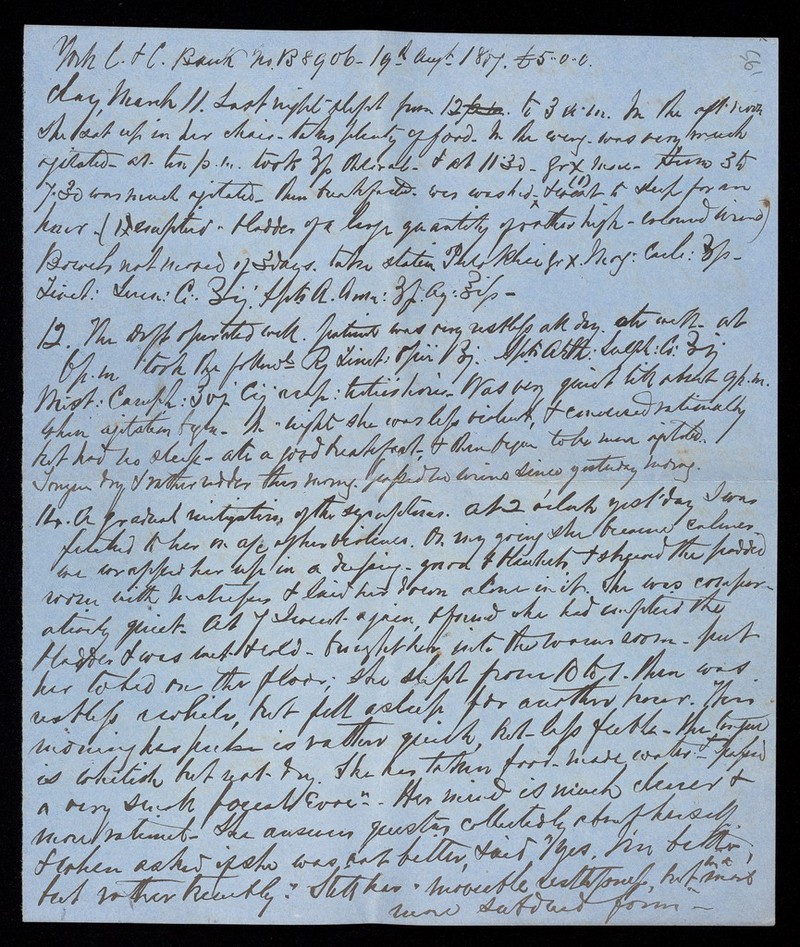 York C. & C. Bank No. B 8906 - 19th Augt. 1857. £5-0-0.
day, March 11. Last night slept from 12 to 3 a.m. In the afternoon
she sat up in her chair - takes plenty of food. In the eveng. was very much
agitated - at ten p.m. took & at 11:30 - gr x more - From 3 to
7:30 was much agitated - then breakfasted - was washed - & went to sleep for an
hour - (1) emptied - bladder of a large quantity of rather high - coloured urine)
Bowels not moved for 3 days. take statim Pulv. Rhei gr x. Mag: Carb: ʒfs -
Tinct: Senn: C. ʒij Spts A. Arom: ʒfs Aq: ℥ifs -
12. The dgft operated well. patient was very restless all day. ate well - at
6 p.m. took the followg. Rx Tinct: Opii Sulph: C: ʒij
Mist: Camph: ʒvj - Was very quiet till about 9 p.m.
when agitation began - In - night she was less violent, & conversed rationally
but had no sleep - ate a good breakfast, & then began to be more agitated.
Tongue dry & rather redder this morng. passed no urine since yesterday morng.
A gradual mitigation of the symptoms. At 2 o'clock yest'day I was
fetched to her on a/c of her violence. On my going she became calmer
we wrapped her up in a dressing - gown & blankets, & strewed the padded
room with mattresses & laid her down alone in it. She was compar-
atively quiet - At 7 I went again, & found she had emptied the
bladder & was wet & cold - brought her into the warm room - put
her to bed on the floor; she slept from 10 to 1. then was
restless awhile, but fell asleep for another hour. This
morning her pulse is rather quick, but less feeble - the tongue
is whitish but not dry. She has taken food - made water - & passed
a very small faecal Evacn. - Her mind is much clearer &
more rational - She answers questions collectedly about herself
& when asked if she was not better, said "yes, I'm better,
but rather trembly." Still has "moveable restlessness, but in a
more subdued form" -